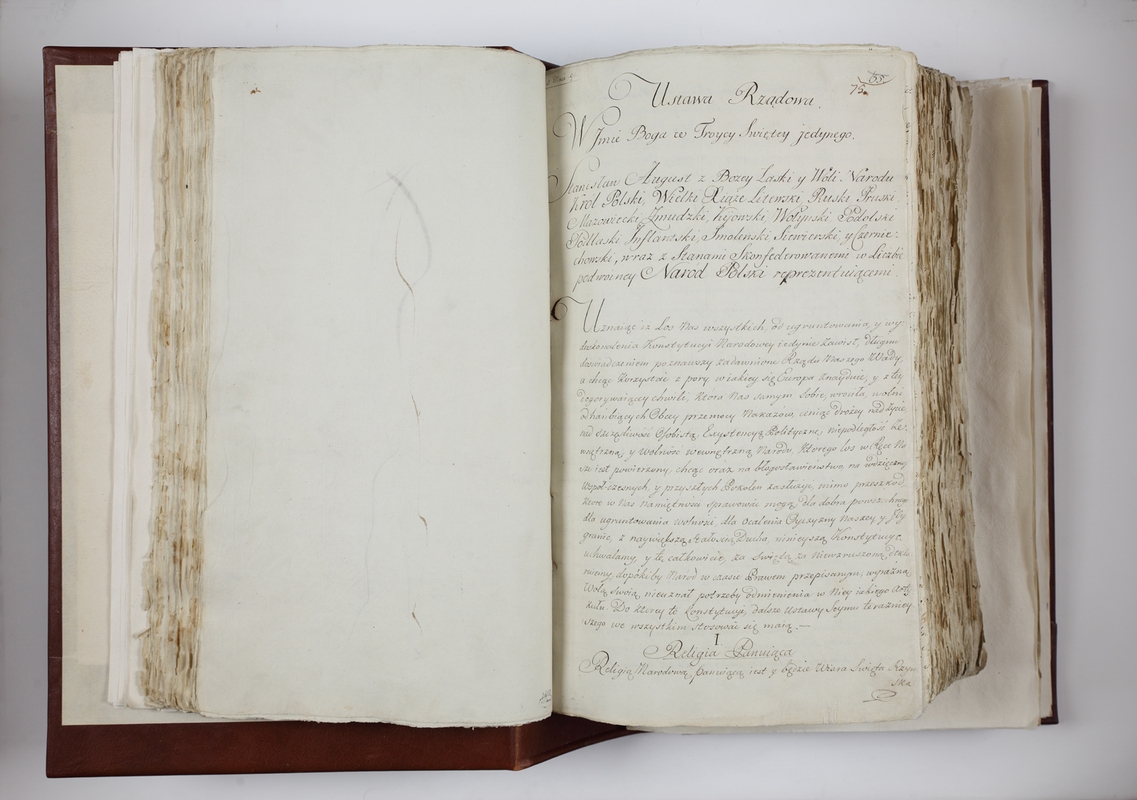 65
75.
Ustawa Rządowa.
W Jmie Boga w Troycy Swiętey jedynego.
Stanisław August z Bożey Łaski y Woli Narodu
Krol Polski, Wielki Xiąże Litewski, Ruski, Pruski,
Mazowiecki, Żmudzki, Kijowski, Wołyński, Podolski
Podlaski, Inflantski, Smolenski, Siewierski, y Czernie-
chowski, wraz z Stanami Skonfederowanemi w Liczbie
podwoiney Narod Polski reprezentuiącemi.
Uznaiąc iż Los Nas wszystkich, od ugruntowania, y wy-
doskonalenia Konstytucyi Narodowey iedynie zawisł, długim
doświadczeniem poznawszy zadawnione Rządu Naszego Wady,
a chcąc korzystać z pory w iakiey się Europa znayduie, y z tey
dogorywaiącey chwili, ktora Nas samym Sobie wrociła, wolni
od hańbiących Obcey przemocy Nakazow, ceniąc drożey nad życie,
nad szczęśliwość Osobistą Exystencyą Polityczną, niepodległość ze-
wnętrzną, y wolność wewnętrzną Narodu, ktorego los w Ręce Na-
sze iest powierzony, chcąc oraz na błogosławieństwo, na wdzięczność
Wspoł-czesnych, y przyszłych Pokolen zasłużyć, mimo przeszkod,
ktore w Nas Namiętności sprawować mogą, dla dobra powszechnego
dla ugruntowania wolności, dla ocalenia Oyczyzny Naszey y Jey
granic, z naywiększą stałością Ducha, ninieyszą Konstytucyę
uchwalamy, y tę całkowicie, za Swiętą, za Niewzruszoną dekla-
ruiemy, dopokiby Narod w czasie Prawem przepisanym, wyraźną
Wolą Swoią, nieuznał potrzeby odmienienia w Niey iakiego Arty-
kułu. Do ktorey to Konstytucyi, dalsze Ustawy Seymu terazniey-
szego we wszystkim stosować się maią.—
I
Religia Panuiąca
Religią Narodową, panuiącą iest y będzie Wiara Swięta Rzym-
ska